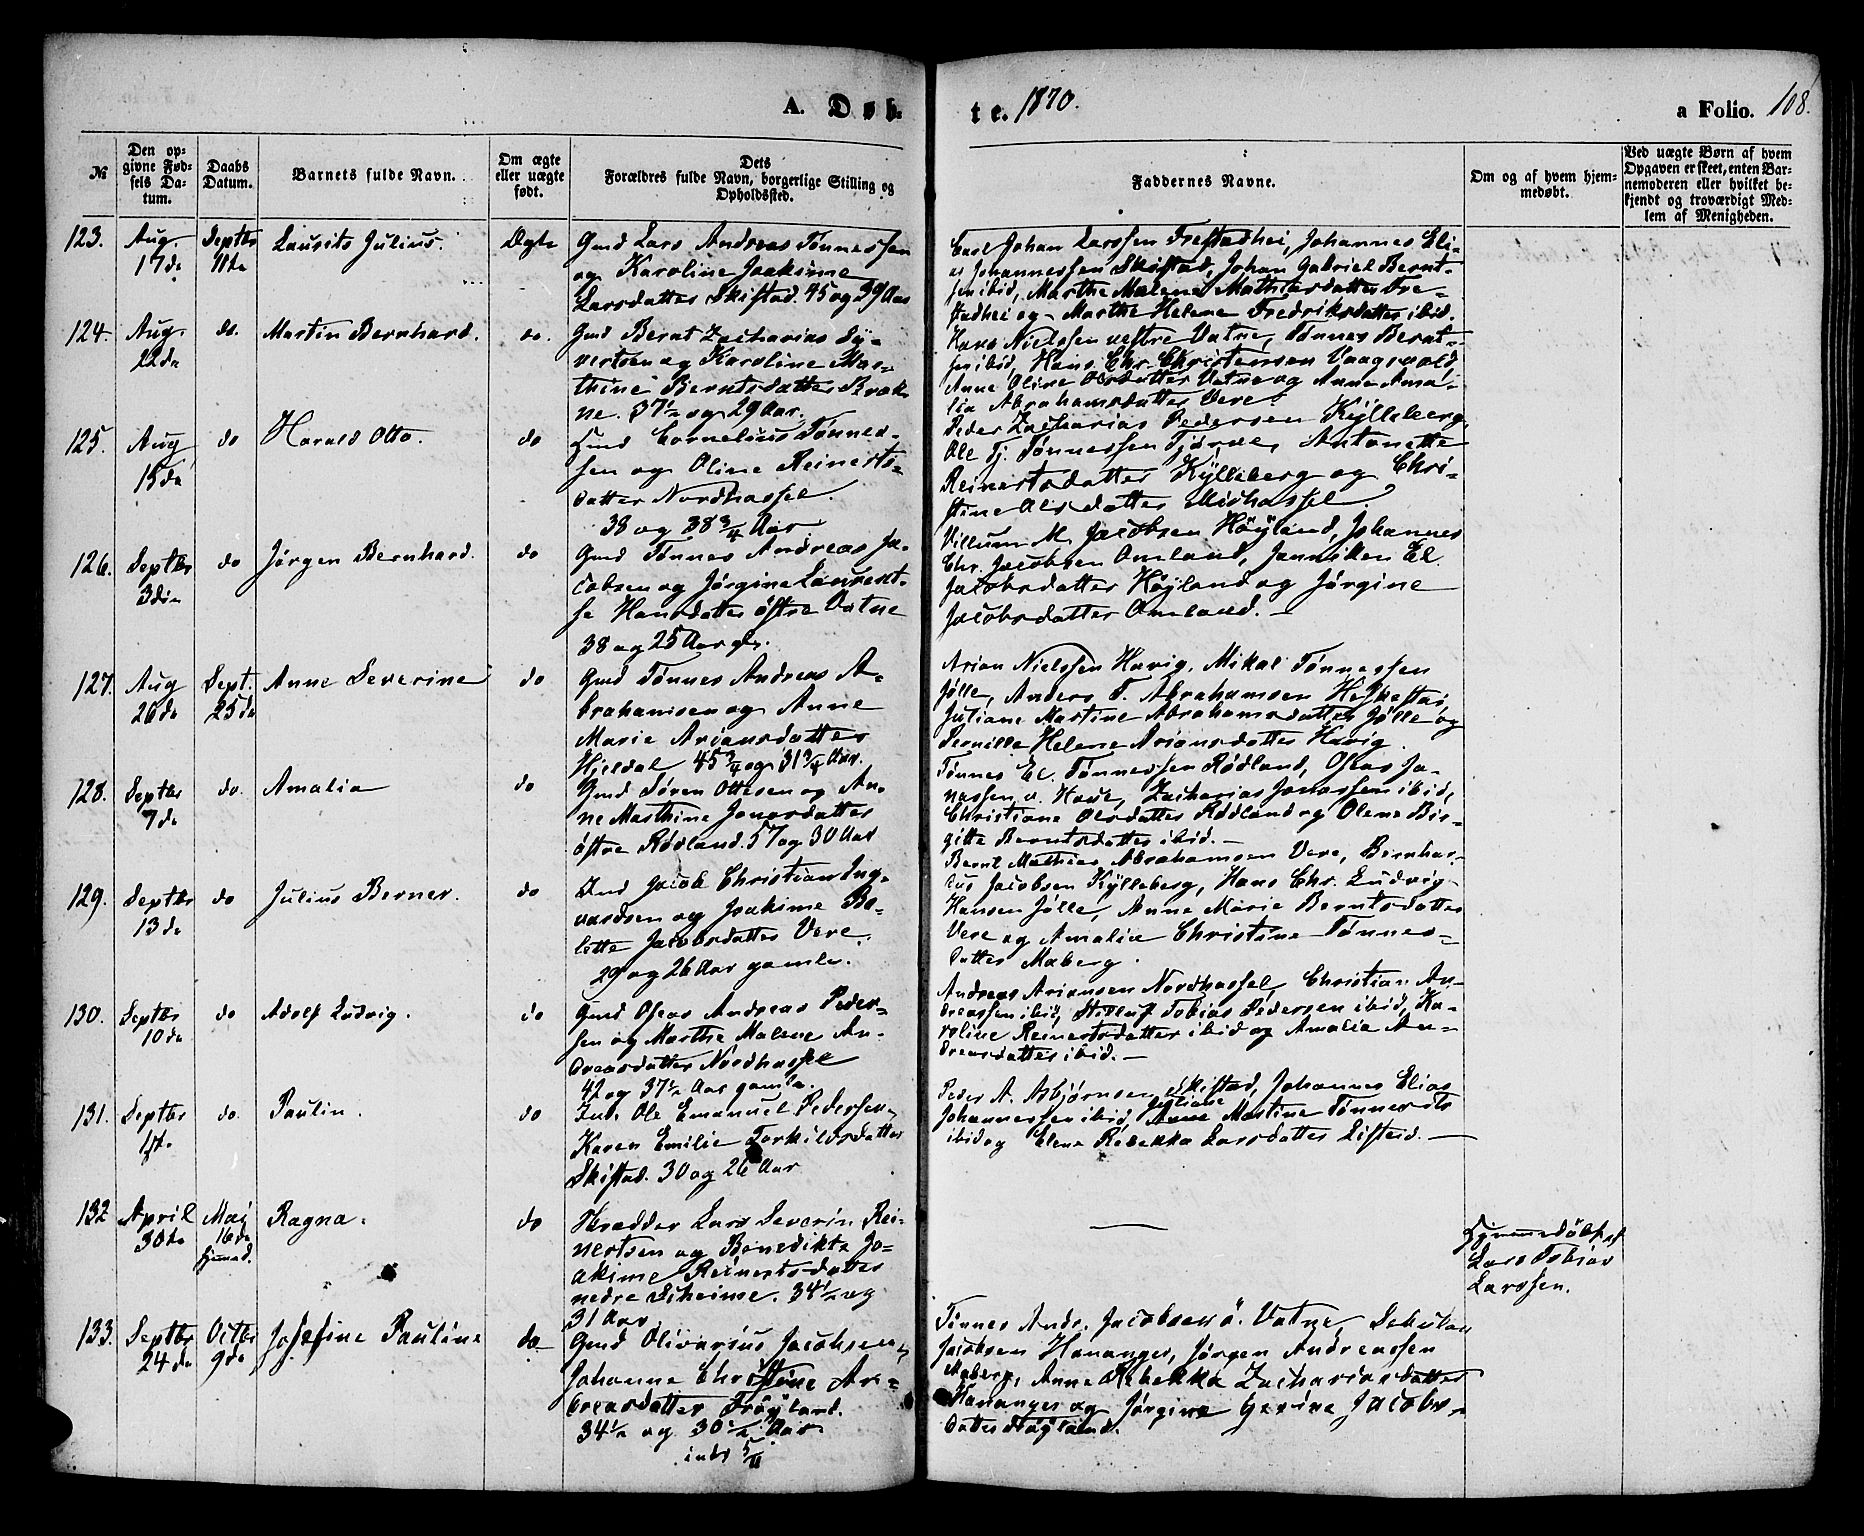 A. Døb-
te. 1870.
a Folio. 108.
№
Den op-
givne Fød-
sels Da-
tum.
Daabs
Datum.
Barnets fulde Navn.
Om ægte
eller uægte
født.
Dets
Forældres fulde Navn, borgerlige Stilling og
Opholdssted.
Faddernes Navne.
Om og af hvem hjem-
medøbt.
Ved uægte Børn af hvem
Opgaven er skeet, enten Bar-
nemoderen eller hvilket be-
kjendt og troværdigt Med-
lem af Menigheden.
123.
Aug.
17de
Septbr
11te
Laurits Julius.
Ægte
Gmd Lars Andreas Tønnessen
og Karoline Joakime
Larsdatter Skistad. 45 og 39 Aar
Carl Johan Larssen Frestadhei, Johannes Eli-
as Johannessen Skistad, Johan Gabriel Bernt-
sen ibid, Marthe Malene Mathiasdatter Fre-
stadhei og Marthe Helene Fredriksdatter ibid.
124.
Aug
22de
do.
Martin Bernhard.
do.
Gmd Bernt Zacharias Sy-
vertsen og Karoline Mar-
thine Berntsdatter Bræk-
ne. 37½ og 29 Aar.
Hans Nielssen vestre Vatne, Tønnes Bernt-
sen ibid, Hans Chr. Christensen Vaagsvold,
Anne Oline Olsdatter Vatne og Anne Ama-
lia Abrahamsdatter Vere.
125.
Aug
15de
do
Harald Otto.
do
Gmd Cornelius Tønnes-
sen og Oline Reinerts-
datter Nordhassel.
38 og 38¾ Aar
Peder Zacharias Pedersen Kylleberg,
Ole Tj. Tønnessen Tjørve, Antonette
Reinertsdatter Kylleberg og Chri-
stine Olsdatter Midhassel.
126.
Septbr
3die
do
Jørgen Bernhard.
do
Gmd Tønnes Andreas Ja-
cobsen og Jørgine Laurent-
se Hansdatter østre Vatne
38 og 25 Aar gl.
Villum M. Jacobsen Høyland, Johannes
Chr. Jacobsen Omland, Janniken El.
Jacobsdatter Høyland og Jørgine
Jacobsdatter Omland. —
127.
Aug
26de
Sept.
25de
Anne Severine
do
Gmd Tønnes Andreas A-
brahamsen og Anne
Marie Ariansdatter
Hjeldal 45¾ og 31¾ Aar.
Arian Nielssen Havig, Mikal Tønnessen
Jølle, Anders T. Abrahamsen
Juliane Martine Abrahamsdatter Jølle og
Pernille Helene Ariansdatter Havig.
128.
Septbr
7de
do.
Amalia
do
Gmd Søren Ottesen og An-
ne Marthine Jonasdatter
østre Rødland. 57 og 30 Aar
Tønnes El. Tønnessen Rødland, Oseas Jo-
nassen v. Haue, Zacharias Jonassen ibid,
Christiane Olsdatter Rødland og Olene Bir-
gitte Berntsdatter ibid. —
129.
Septbr
13de
do
Julius Berner.
do
Ind. Jacob Christian Ing-
vardsen og Joakime Bo-
lette Jacobsdatter Vere.
29 og 26 Aar gamle.
Bernt Mathias Abrahamsen Vere, Bernhar-
dus Jacobsen Kylleberg, Hans Chr. Ludvig
Hansen Jølle, Anne Marie Berntsdatter
Vere og Amalia Christine Tønnes-
datter Maberg.
130.
Septbr
10de
do
Adolf Ludvig.
do
Gmd Oseas Andreas Peder-
sen og Marthe Malene An-
dreasdatter Nordhassel
42 og 37½ Aar gamle.
Andreas Ariansen Nordhassel, Christian An-
dreassen ibid, Tobias Pedersen ibid, Ka-
roline Reinertsdatter ibid og Amalia An-
dreasdatter ibid. —
131.
Septbr
1ste
do.
Paulin.
do
Ind. Ole Emanuel Pedersen,
Karen Emilie Torkildsdatter
Skistad. 30 og 26 Aar
Peder A. Asbjørnsen Skistad, Johannes Elias
Johannessen ibid, Juliane Martine Tønnesdtr
ibid og Elene Rebekka Larsdatter Listeid. —
132
April
30te
Mai
16de
hjemmd.
Ragna.
do
Skrædder Lars Severin Rei-
nertsen og Benedikte Jo-
akime Reinertsdatter
nedre Eiheime. 34½ og
31 Aar.
—
Hjemmedøbt af
Lars Tobias
Larssen.
133.
Septbr
24de
Octbr
9de
Josefine Pauline
do
Gmd Olivarius Jacobsen,
Johanne Christine An-
dreasdatter Frøyland.
34½ og 30½ Aar.
indb 5/11
Tønnes Andr. Jacobsen ø. Vatne, Sekulan
Jacobsen Hananger, Jørgen Andreassen
Maberg, Anne Rebekka Zachariasdatter
Hananger og Jørgine Gerine Jacobs-
datter Høyland.